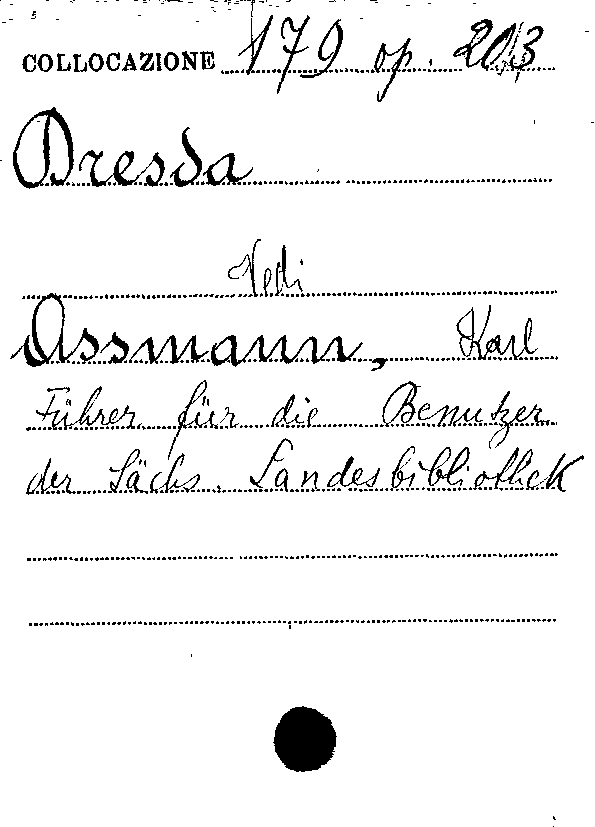 COLLOCAZIONE 179 op. 203
Dresda
Vedi
Assmann, Karl
Führer für die Benutzer
der Sächs. Landesbibliothek